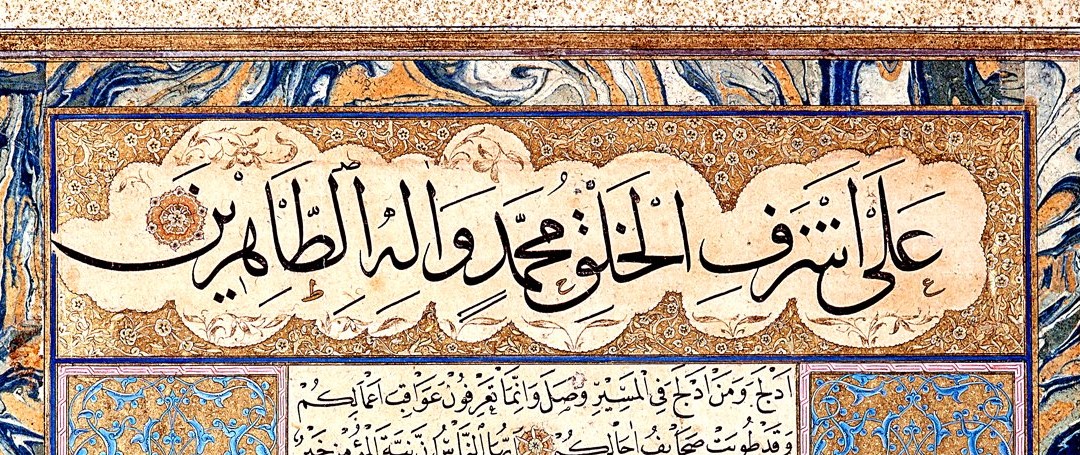 عَلَى اَشْرَفِ الْخَلْقِ مُحَمَّدٍ وَاٰلِهِ الطَّاهِرِينَ
ادْلَجَ وَمَنْ ادْلَجَ فِي الْمَسِيْرِ وَصَلَ وَاِنَّمَا تَعْرِفُونَ عَوَاقِبَ اَعْمَالِكُمْ
وَقَدْ طُوِيَتْ صَحَايِفُ اجَالِكُمْ اَيُّهَا النَّاسُ اِنَّ نِيَّةَ الْمُؤْمِنِ خَيْرٌ